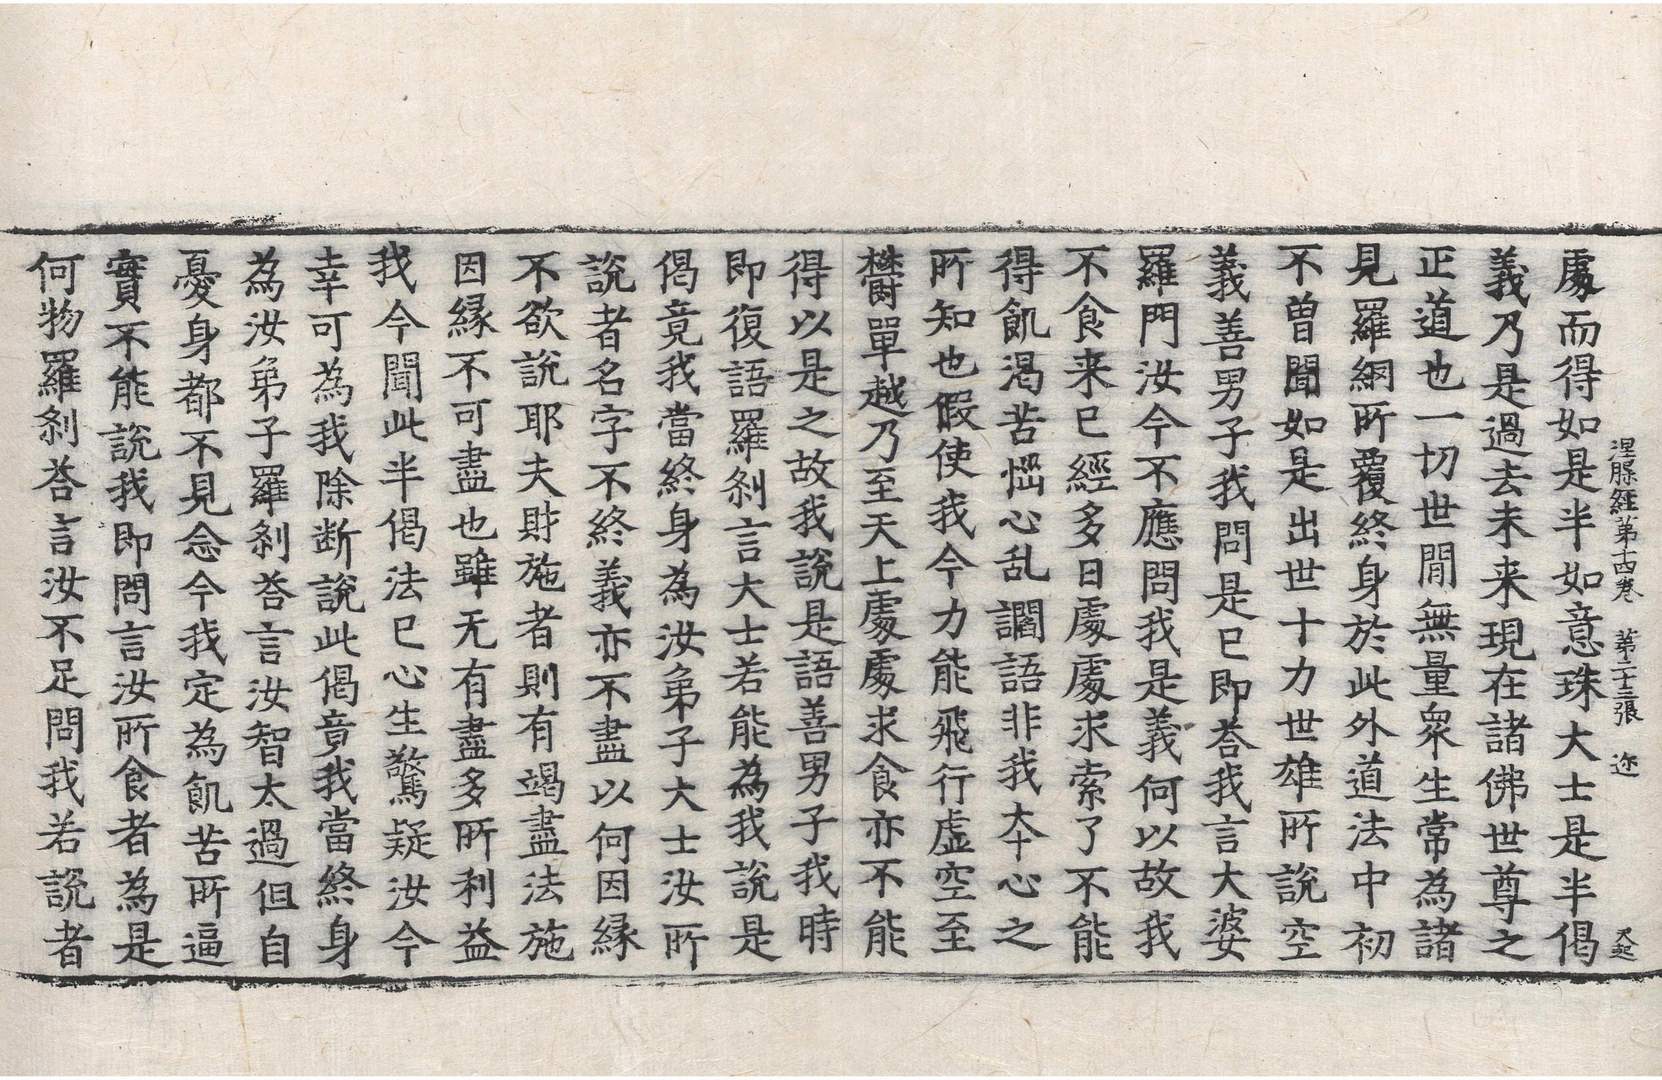 涅槃經第十四卷　第二十三張　迩　天起
處而得如是半如意珠大士是半偈
義乃是過去未来現在諸佛世尊之
正道也一切世閒無量衆生常為諸
見羅網所覆終身於此外道法中初
不曽聞如是出世十力世雄所說空
義善男子我問是已即荅我言大婆
羅門汝今不應問我是義何以故我
不食来已經多日處處求索了不能
得飢渇苦惱心乱讇語非我本心之
所知也假使我今力能飛行虚空至
欝單越乃至天上處處求食亦不能
得以是之故我說是語善男子我時
即復語羅刹言大士若能為我說是
偈竟我當終身為汝弟子大士汝所
說者名字不終義亦不盡以何因縁
不欲說耶夫財施者則有竭盡法施
因縁不可盡也雖无有盡多所利益
我今聞此半偈法已心生驚疑汝今
幸可為我除断說此偈竟我當終身
為汝弟子羅刹荅言汝智太過但自
憂身都不見念今我定為飢苦所逼
實不能說我即問言汝所食者為是
何物羅刹荅言汝不足問我若說者